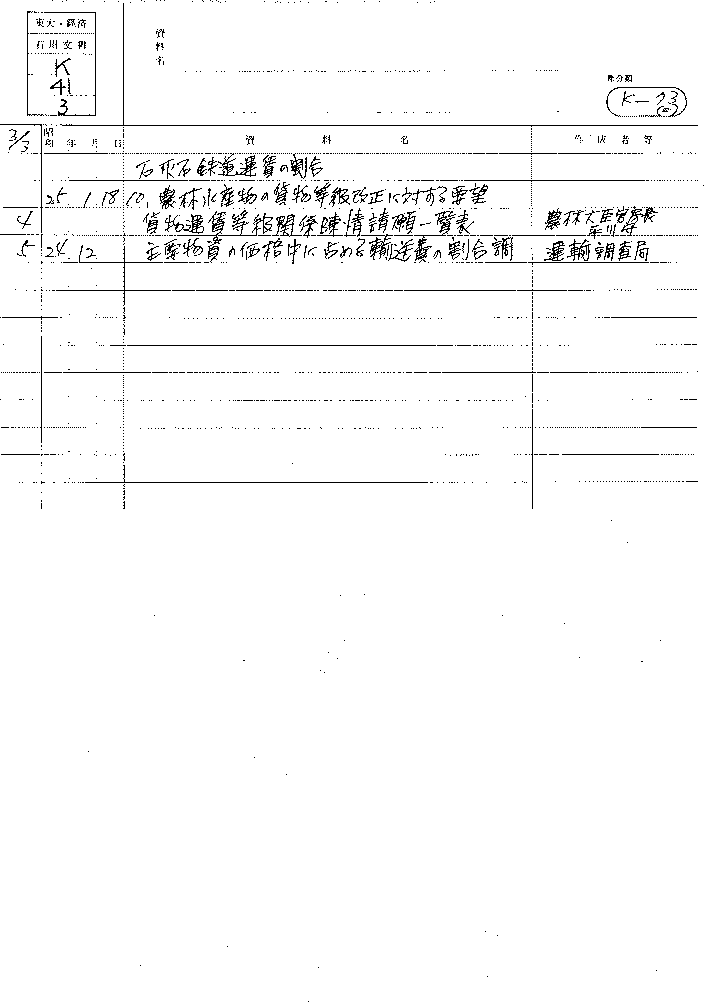 東大・経済
石川文庫
K
41
3
資料名
原分類
K-23
3/3 昭和 年 月 日 資料名 作成者等
石灰石鉄道運賃の割合
25 1 18 10. 農林水産物の貨物等級改正に対する要望
4 貨物運賃等級関係陳情請願一覧表 農林大臣官房長 平川守
5 24 12 主要物資の価格中に占める輸送費の割合調 運輸調査局